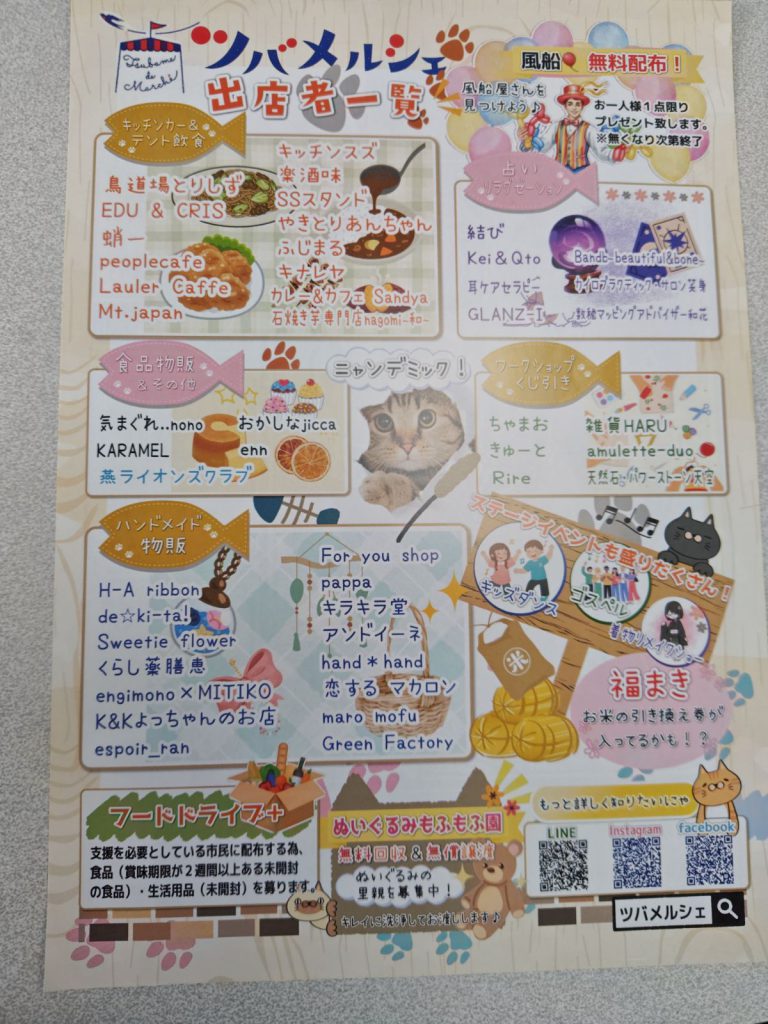 Tsubame
de
Marché
ツバメルシェ
出店者一覧
風船 無料配布！
風船屋さんを
見つけよう♪
お一人様１点限り
プレゼント致します。
※無くなり次第終了
キッチンカー＆
テント飲食
鳥道場とりしず
EDU & CRIS
蛸一
peoplecafe
Lauler Caffe
Mt.japan
キッチンスズ
楽酒味
SSスタンド
やきとりあんちゃん
ふじまる
キナレヤ
カレー&カフェ Sandya
石焼き芋専門店nagomi-和-
占い
リラクゼーション
結び
Kei＆Qto
耳ケアセラピー
GLANZ-I
Bandb-beautiful&bone-
カイロプラクティック・サロン笑身
数秘マッピングアドバイザー和花
食品物販
＆その他
気まぐれ..nono
KARAMEL
燕ライオンズクラブ
おかしなjicca
enn
ニャンデミック！
ワークショップ
くじ引き
ちゃまお
きゅーと
Rire
雑貨HARU
amulette-duo
天然石・パワーストーン天空
ハンドメイド
物販
H-A ribbon
de☆ki-ta!
Sweetie flower
くらし薬膳恵
engimono×MITIKO
K&Kよっちゃんのお店
espoir_ran
For you shop
pappa
キラキラ堂
アンドイーネ
hand＊hand
恋する マカロン
maro mofu
Green Factory
ステージイベントも盛りだくさん！
キッズダンス
ゴスペル
着物リメイクショー
米
福まき
お米の引き換え券が
入ってるかも！？
フードドライブ＋
支援を必要としている市民に配布する為、
食品（賞味期限が２週間以上ある未開封
の食品）・生活用品（未開封）を募ります。
ぬいぐるみもふもふ園
無料回収＆無償譲渡
ぬいぐるみの
里親を募集中！
キレイに洗浄してお渡しします♪
もっと詳しく知りたいにゃ
LINE
Instagram
facebook
ツバメルシェ